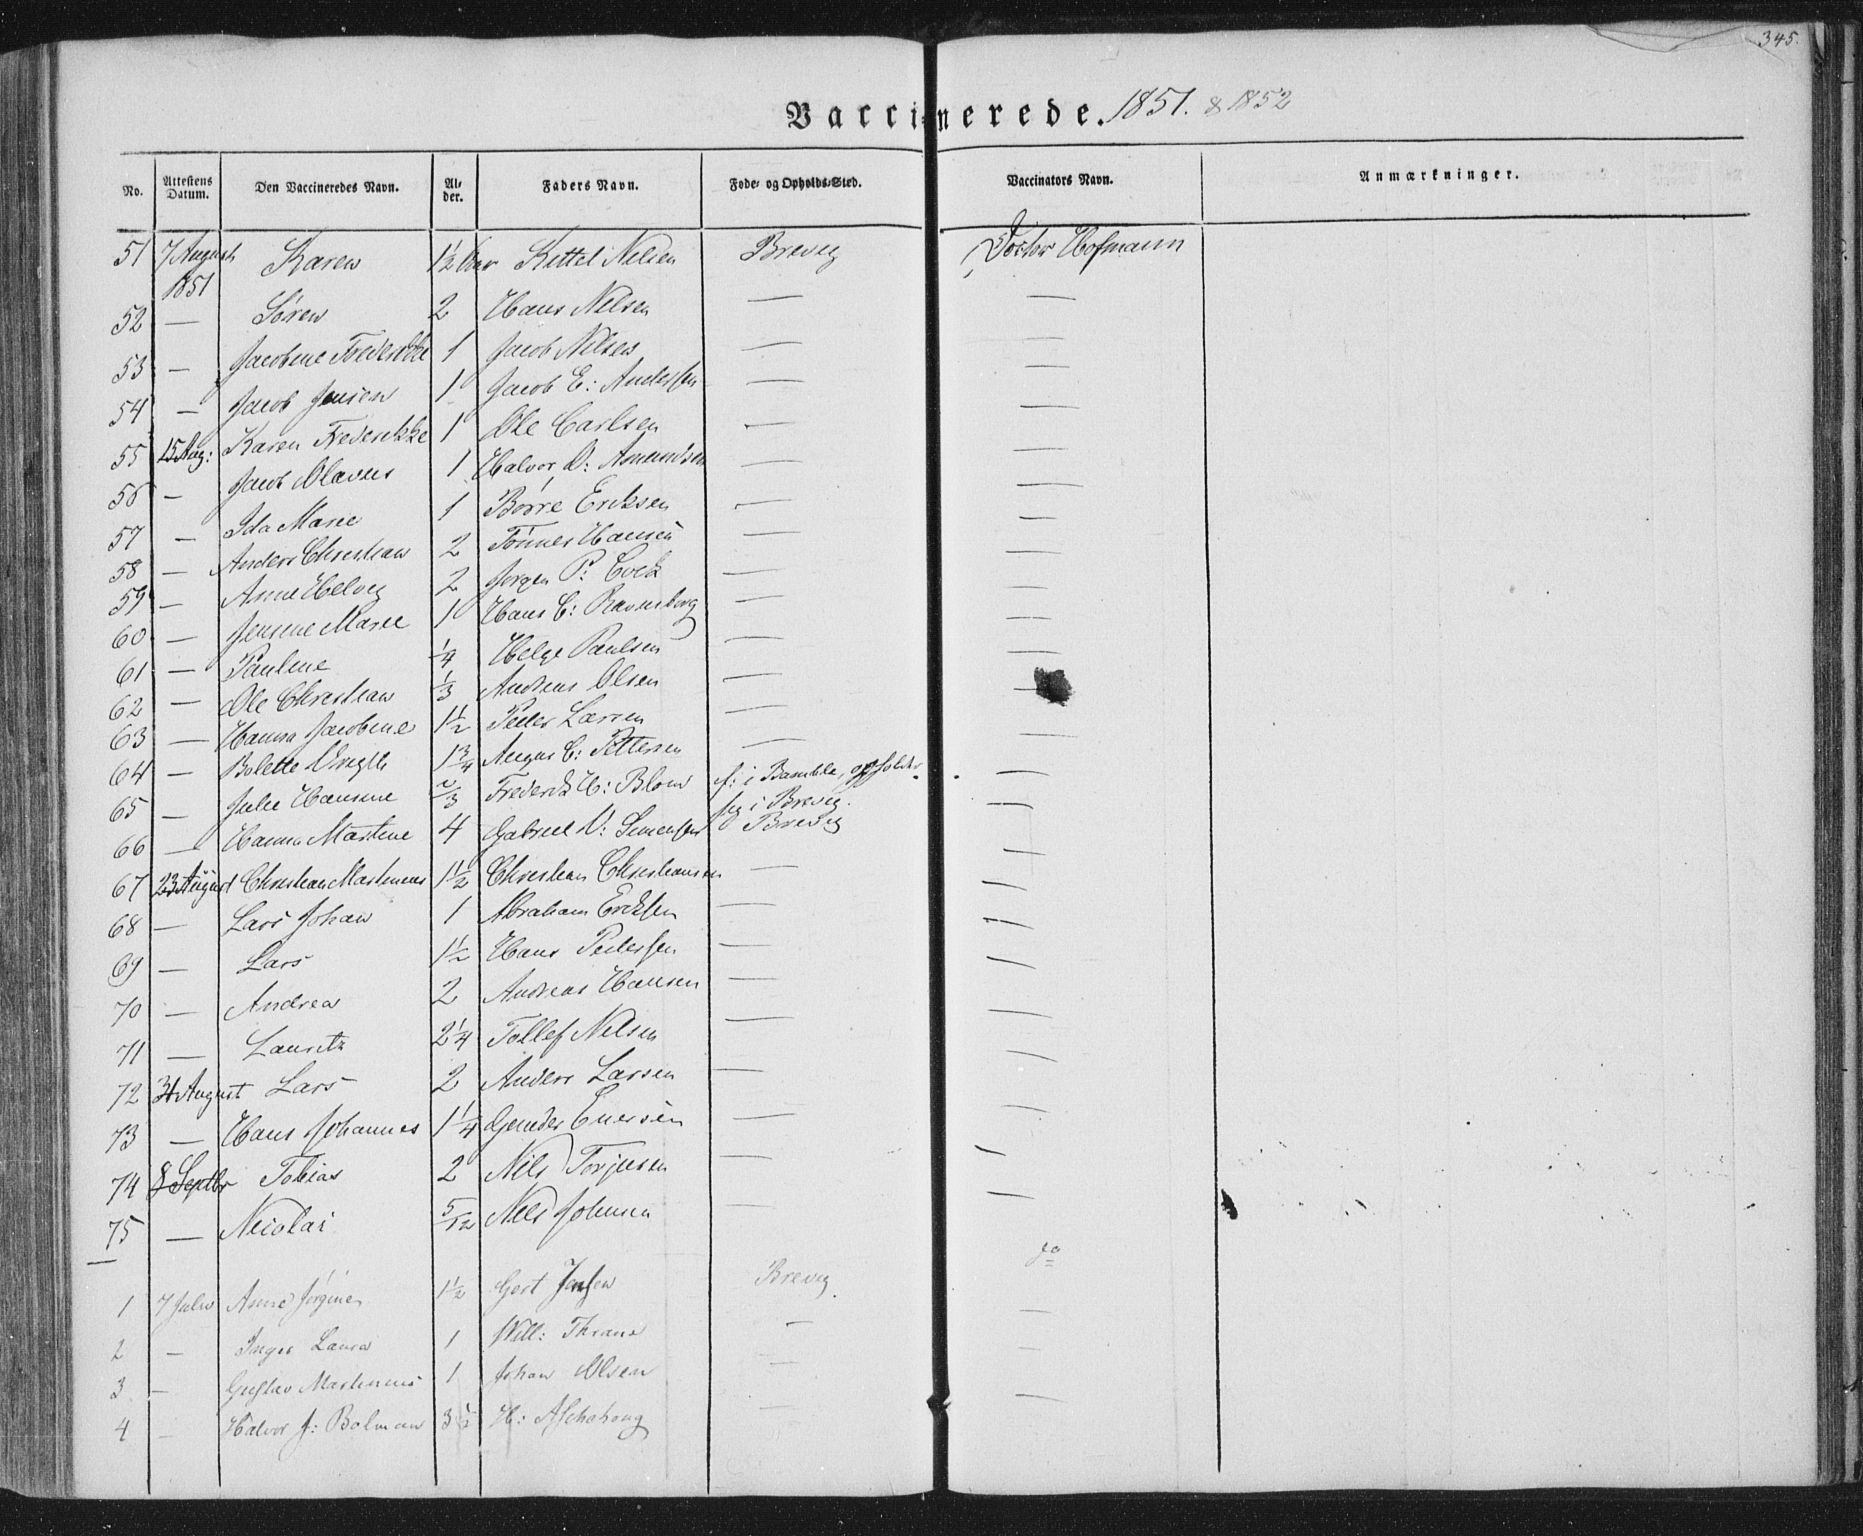 345.
Vaccinerede. 1851. & 1852
No. Attestens Datum. Den Vaccineredes Navn. Alder. Faders Navn. Føde- og Opholds-Sted. Vaccinators Navn. Anmærkninger.
51 7 August 1851 Karen 1½ Aar Kittel Nilsen Brevig Doctor Hofmann
52 — Søren 2 Hans Nilsen — —
53 — Jacobine Frederikke 1 Jacob Nilsen — —
54 — Jacob Jensen 1 Jacob E: Andersen — —
55 15 Aug: Karen Frederikke 1 Ole Carlsen — —
56 — Jacob Olavus 1 Halvor O: Amundsen — —
57 — Ida Marie 1 Børre Eriksen — —
58 — Anders Christian 2 Tønnes Hansen — —
59 — Anne Helvig 2 Jørgen P: Cock — —
60 — Jensine Marie 1 Hans C: Ravnsborg — —
61 — Pauline ¼ Helge Paulsen — —
62 — Ole Christian ⅓ Andreas Olsen — —
63 — Hanna Jacobine 1½ Peder Larsen — —
64 — Bolette 1¾ August C: Pettersen — —
65 — Julie Hansine ⅔ Frederik H: Blom f: i Bamble, opholder sig i Brevig. —
66 — Hanna Martine 4 Gabriel O: Simensen Brevig —
67 23 August Christian Martinius 1½ Christian Christiansen — —
68 — Lars Johan 1 Abraham Eriksen — —
69 — Lars 1½ Hans Pedersen — —
70 — Andrea 2 Andreas Hansen — —
71 — Lauritz 2¼ Tollef Nilsen — —
72 31 August Lars 2 Anders Larsen — —
73 — Hans Johannes 1¼ Gunder Enersen — —
74 8 Septbr Tobias 2 Nils Torjusen — —
75 — Nicolai 5/12 Nils Johnsen — —
1 7 Julii Anne Jørgine 1½ Gert Jensen Brevig do
2 — Inger Laura 1 Will: Thrane — —
3 — Gustav Martinius 1 Johan Olsen — —
4 — Halvor J: Bolman 3½ H: — —